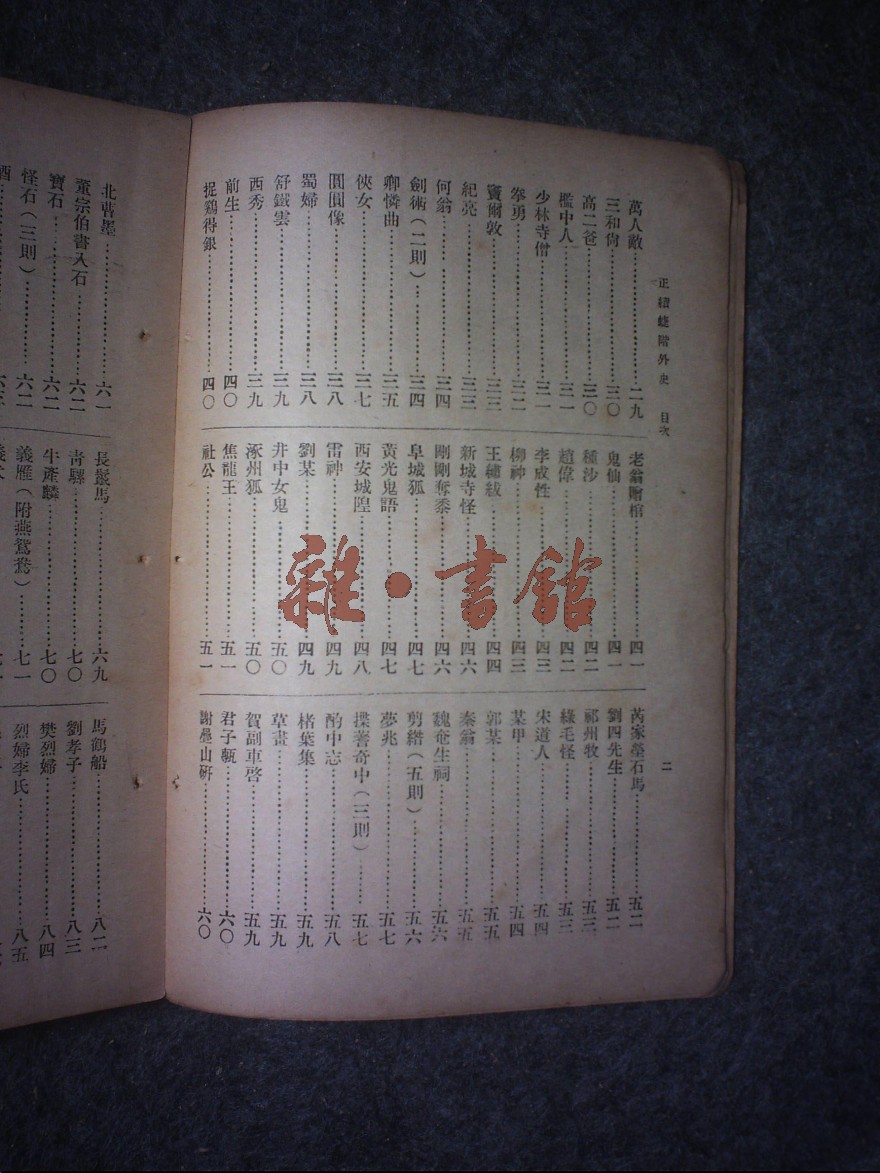 正續蝶階外史 目次
二
萬人敵……二九
三和尙……三〇
高二爸……三〇
檻中人……三一
少林寺僧……三一
拳勇……三二
竇爾敦……三三
紀亮……三三
何翁……三四
劍術(二則)……三四
卿憐曲……三五
俠女……三七
圓圓像……三八
蜀婦……三八
舒鐵雲……三九
西秀……三九
前生……四〇
捉鷄得銀……四〇
老翁贈棺……四一
鬼仙……四一
種沙……四二
趙偉……四二
李成性……四三
柳神……四三
王繡紱……四四
新城寺怪……四六
剛剛奪黍……四六
阜城狐……四七
黃光鬼語……四七
西安城隍……四八
雷神……四九
劉某……四九
井中女鬼……五〇
涿州狐……五〇
焦龍王……五一
社公……五一
芮家塋石馬……五二
劉四先生……五二
祁州牧……五三
綠毛怪……五三
宋道人……五四
某甲……五四
郭某……五五
秦翁……五五
魏奄生祠……五六
剪綹(五則)……五六
夢兆……五七
揲蓍奇中(三則)……五七
酌中志……五八
楮葉集……五九
草書……五九
賀副車啓……五九
君子甎……六〇
謝疊山硏……六〇
北曹墨……六一
董宗伯書入石……六二
寶石……六二
怪石(三則)……六二
酒
長鬣馬……六九
靑騾……七〇
牛產麟……七〇
義雁(附燕鴛鴦)……七一
馬鶴船……八二
劉孝子……八三
樊烈婦……八四
烈婦李氏……八五
雜·書館